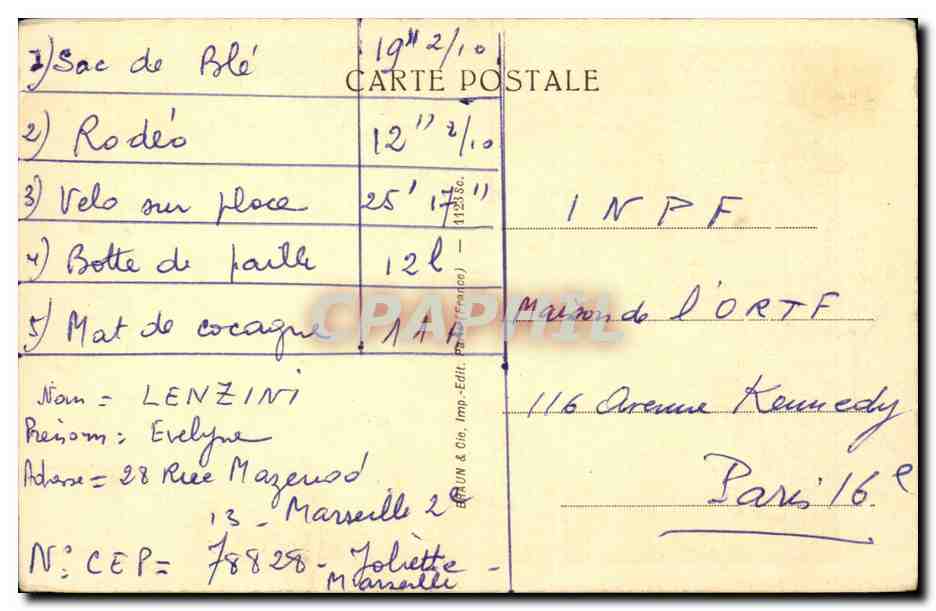 1) Sac de Blé 19" 2/10
CARTE POSTALE
2) Rodéo 12" 2/10
3) Velo sur place 25' 17"
4) Botte de paille 12l
5) Mat de cocagne
Nom = LENZINI
Prénom: Evelyne
Adresse = 28 Rue Mazenod
13 - Marseille 2e
N°: CEP = 78828 - Joliette -
Marseille
BRAUN & Cie, Imp.-Edit. Paris (France) — 1123 Sc.
INPF
Maison de l'ORTF
116 Avenue Kennedy
Paris 16e
CPAPHIL